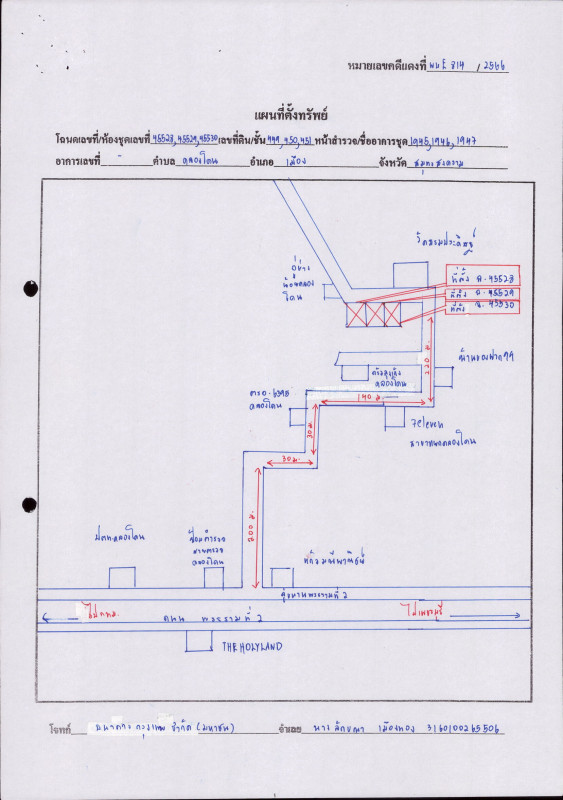 หมายเลขคดีแดงที่ ผบE 814 / 2566
แผนที่ตั้งทรัพย์
โฉนดเลขที่/ห้องชุดเลขที่ 45528, 45529, 45530 เลขที่ดิน/ชั้น 449, 450, 451 หน้าสำรวจ/ชื่ออาคารชุด 1945, 1946, 1947
อาคารเลขที่ - ตำบล คลองโคน อำเภอ เมือง จังหวัด สมุทรสงคราม
วัดธรรมประดิษฐ์
อู่ช่าง
น้อยคลอง
โคน
ที่ตั้ง ฉ. 45528
ที่ตั้ง ฉ. 45529
ที่ตั้ง ฉ. 45530
220 ม.
บ้านของฝาก
คลองโคน
140 ม.
คลองโคน
7eleven
สาขา คลองโคน
30 ม.
30 ม.
200 ม.
ปตท.คลองโคน
ป้อมตำรวจ
สายตรวจ
คลองโคน
คู่ขนานพระรามที่ 2
ไปกทม.
ถนน พระรามที่ 2
ไปเพชรบุรี
THE HOLYLAND
โจทก์ ธนาคาร กรุงเทพ จำกัด (มหาชน) จำเลย นาง ลักขณา เมืองทอง 3160100265506